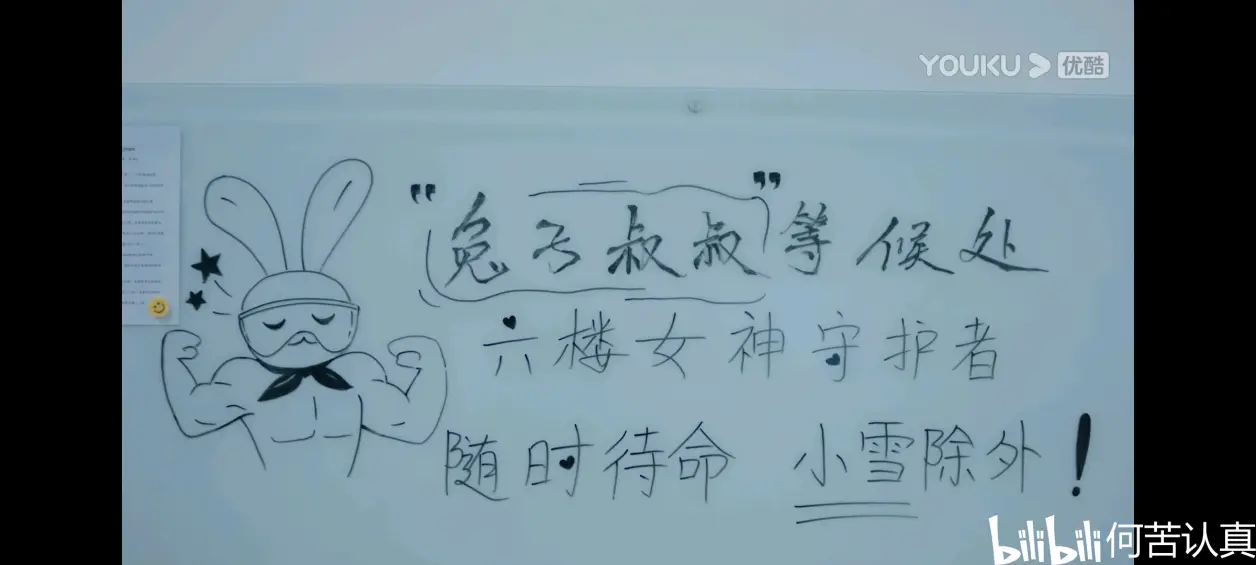 YOUKU 优酷
"兔子叔叔"等候处
六楼女神守护者
随时待命 小雪除外！
bilibili 何苦认真